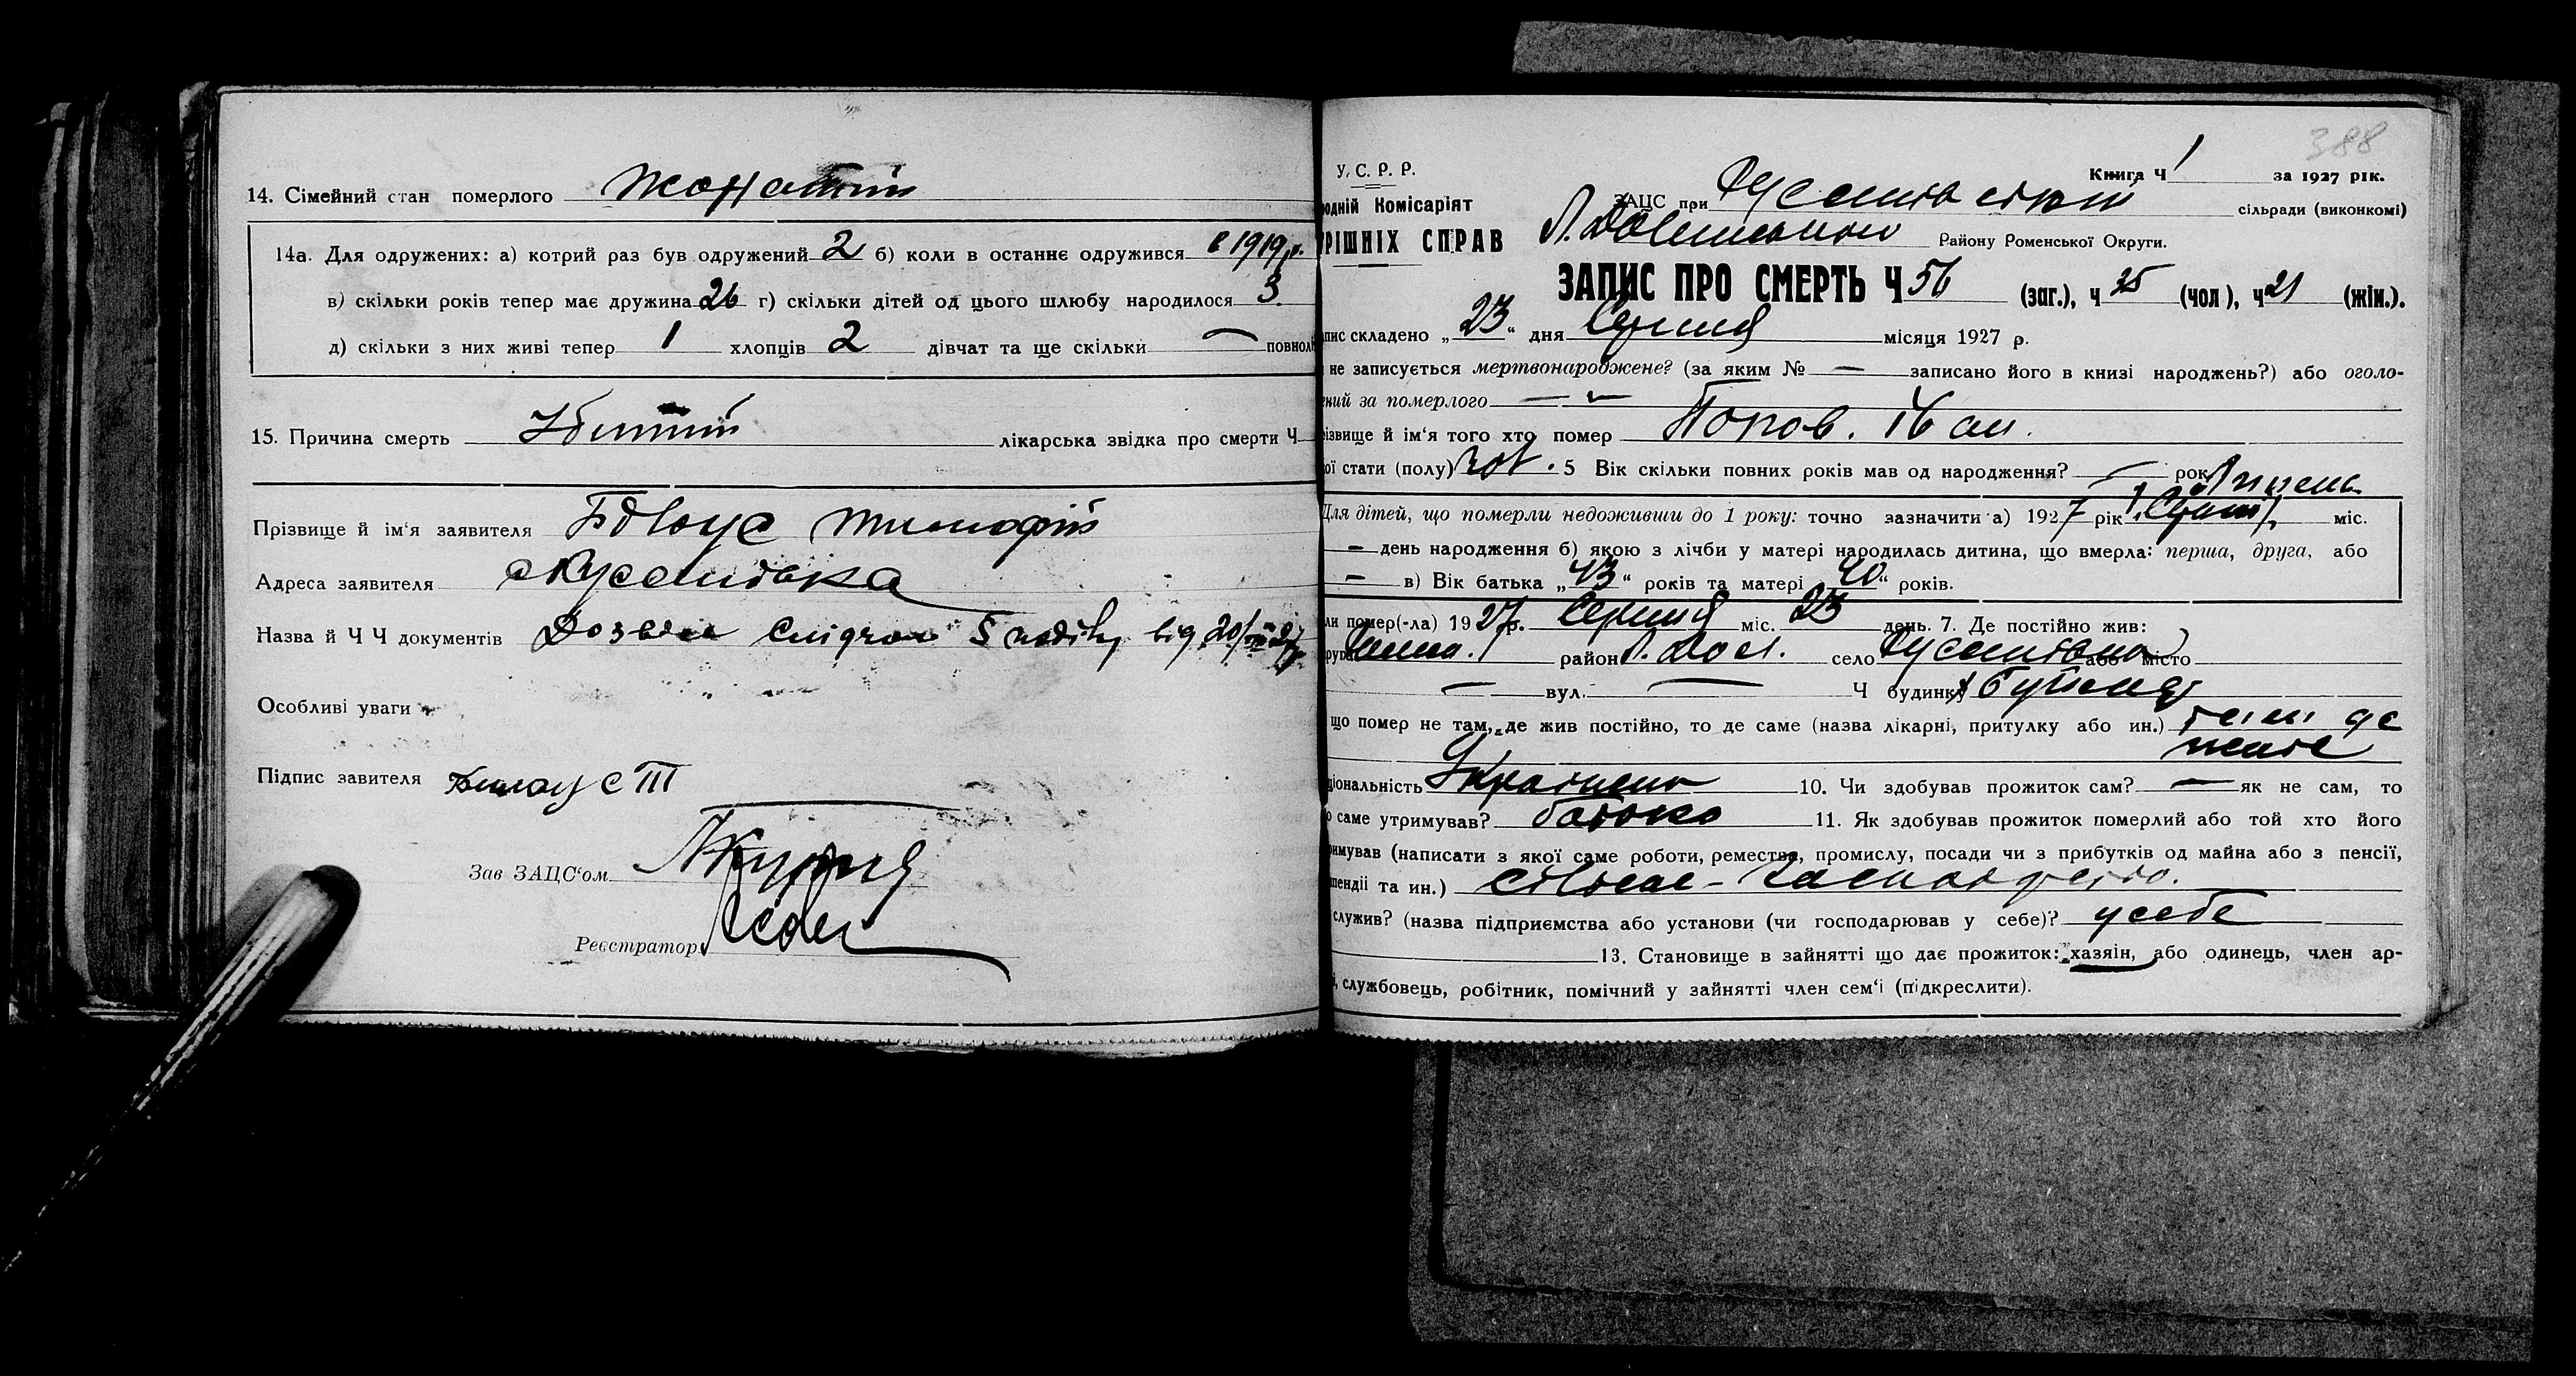 14. Сімейний стан померлого Жонатий
14а. Для одружених: а) котрий раз був одружений 2 б) коли в останнє одружився в 1919 р.
в) скільки років тепер має дружина 26 г) скільки дітей од цього шлюбу народилося 3.
д) скільки з них живі тепер 1 хлопців 2 дівчат та ще скільки — повнолі
15. Причина смерть Убитий лікарська звідка про смерти Ч
Прізвище й ім'я заявителя Білоус Тимофій
Адреса заявителя
Назва й Ч Ч документів Дозвіл від 20/
Особливі уваги
Підпис завителя Билоус Т
Зав ЗАЦС'ом
Реєстратор
388
У. С. Р. Р.
Книга Ч 1 за 1927 рік.
одній Комісаріят
ЗАЦС при сільради (виконкомі)
РІШНІХ СПРАВ
Району Роменської Округи.
ЗАПИС ПРО СМЕРТЬ Ч 56 (заг.), ч 35 (чол), ч 21 (жін.).
пис складено „23“ дня Серпня місяця 1927 р.
не записується мертвонароджене? (за яким № — записано його в книзі народжень?) або оголо-
ений за померлого — —
різвище й ім'я того хто помер Попов. Іван.
ої стати (полу) чол. 5 Вік скільки повних років мав од народження? — рок
Для дітей, що померли недоживши до 1 року: точно зазначити а) 1927 рік міс.
— день народження б) якою з лічби у матері народилась дитина, що вмерла: перша, друга, або
— в) Вік батька „43“ років та матері „40“ років.
ли помер(-ла) 1927 р. Серпня міс. 23 день. 7. Де постійно жив:
район село або місто
— вул. — Ч будинку
що помер не там, де жив постійно, то де саме (назва лікарні, притулку або ин.) там де
живе
ціональність Українець 10. Чи здобував прожиток сам? — як не сам, то
о саме утримував? батько 11. Як здобував прожиток померлий або той хто його
имував (написати з якої саме роботи, ремества, промислу, посади чи з прибутків од майна або з пенсії,
пендії та ин.) сільськ-
служив? (назва підприємства або установи (чи господарював у себе)? у себе
13. Становище в зайнятті що дає прожиток: хазяїн, або одинець, член ар-
і, службовець, робітник, помічний у зайнятті член сем'ї (підкреслити).